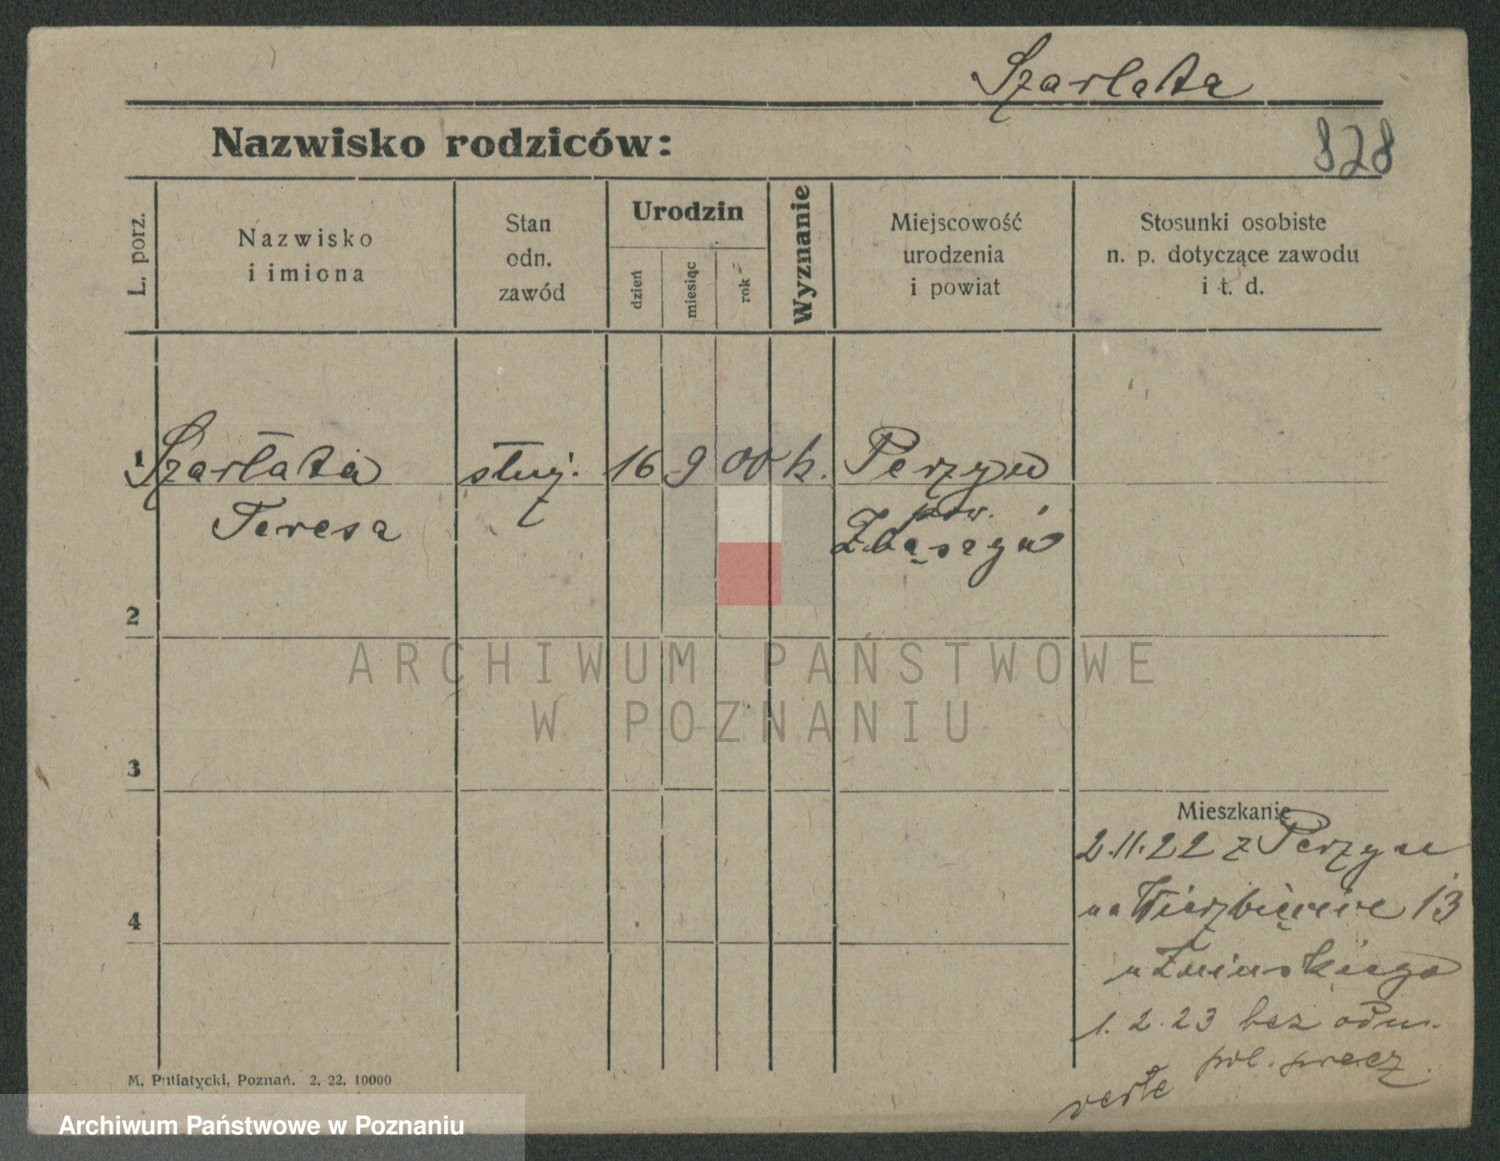 Szarlata
Nazwisko rodziców:
828
L. porz.
Nazwisko
i imiona
Stan
odn.
zawód
Urodzin
dzień
miesiąc
rok
Wyznanie
Miejscowość
urodzenia
i powiat
Stosunki osobiste
n. p. dotyczące zawodu
i t. d.
1 Szarłata służ. 16 9 00 k. Perzyn
Teresa pow.
Zbąszyń
2
ARCHIWUM PAŃSTWOWE
W POZNANIU
3
Mieszkanie
2.11.22 z Perzyn
4 na Wierzbięcice 13
u
1.2.23 bez odm.
pol. precz
verte
M. Putiatycki, Poznań. 2. 22. 10000
Archiwum Państwowe w Poznaniu